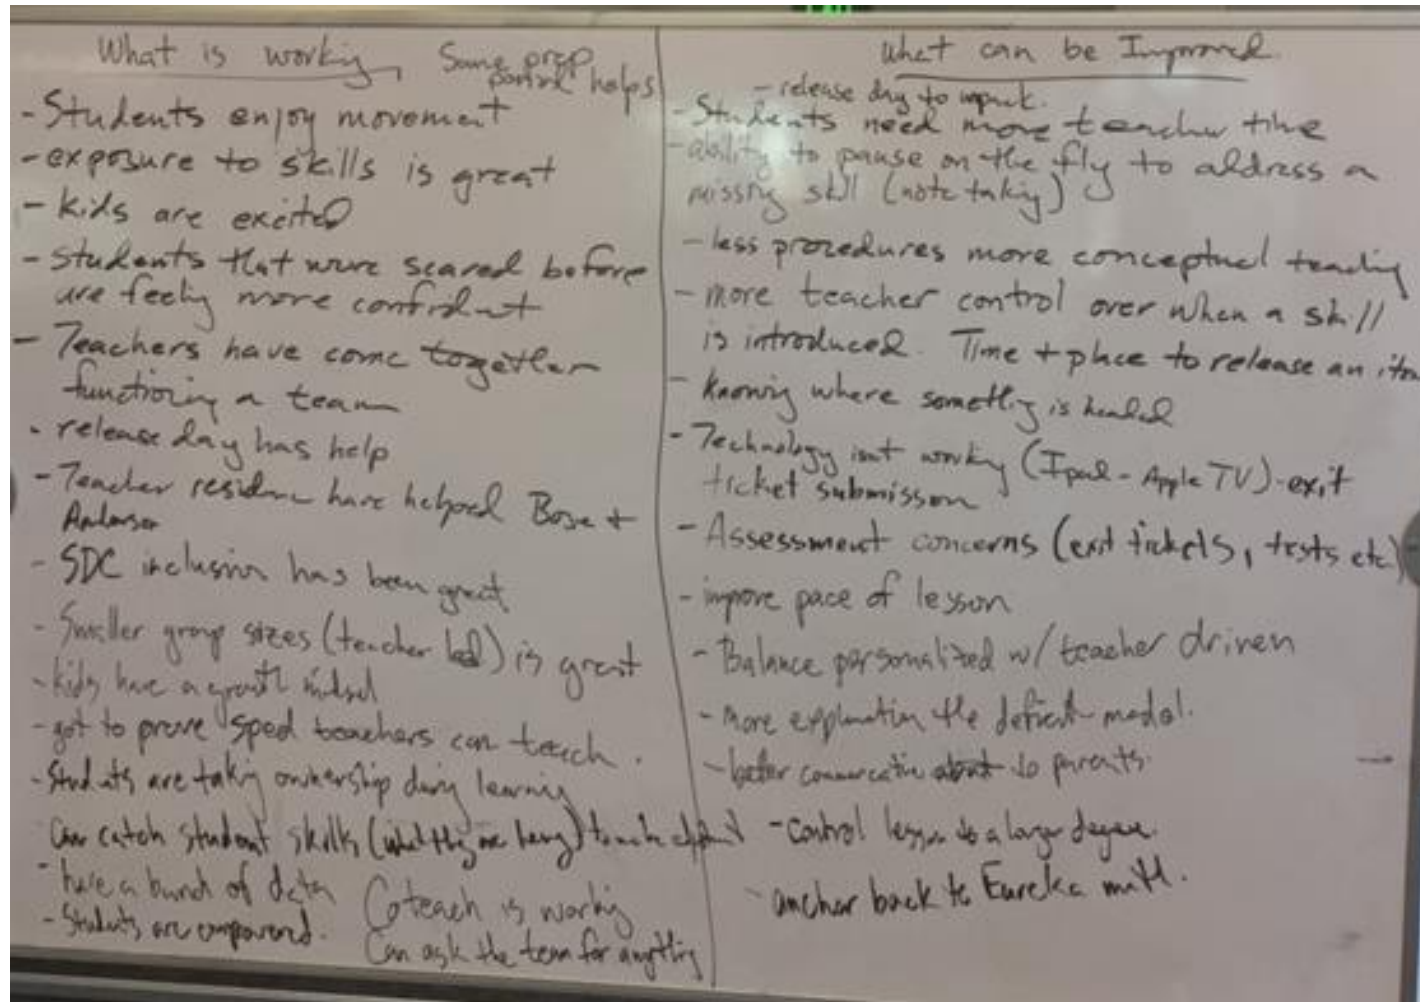 What is working
Same prep
period helps
- Students enjoy movement
- exposure to skills is great
- kids are excited
- students that were scared before
are feeling more confident
- Teachers have come together
functioning a team
- release day has help
- Teacher residence have helped Bose +
Anderson
- SDC inclusion has been great
- Smaller group sizes (teacher led) is great
- kids have a growth mindset
- got to prove sped teachers can teach.
- Students are taking ownership during learning
Can catch student skills (what they are
- have a bunch of data
- Students are empowered.
Coteach is working
Can ask the team for anything
What can be Improved
- release day to unpack.
- Students need more teacher time
- ability to pause on the fly to address a
missing skill (note taking)
- less procedures more conceptual teaching
- more teacher control over when a skill
is introduced. Time + place to release an item
- knowing where something is headed
- Technology isnt working (Ipad - Apple TV) - exit
ticket submission
- Assessment concerns (exit tickets, tests etc)
- improve pace of lesson
- Balance personalized w/ teacher driven
- more explanation the deficit model.
- better communication to parents.
- control lesson to a larger degree.
- anchor back to Eureka math.